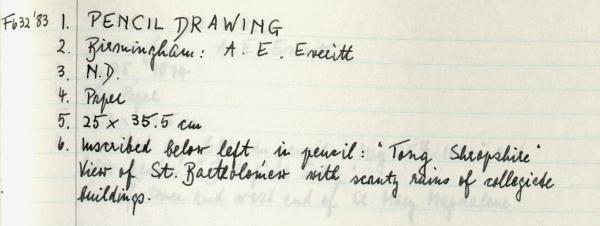 F632'83 1. PENCIL DRAWING
2. Birmingham: A. E. Everitt
3. N.D.
4. Paper
5. 25 x 35.5 cm
6. Inscribed below left in pencil: "Tong Shropshire"
View of St. Bartholomew with scanty ruins of collegiate
buildings.